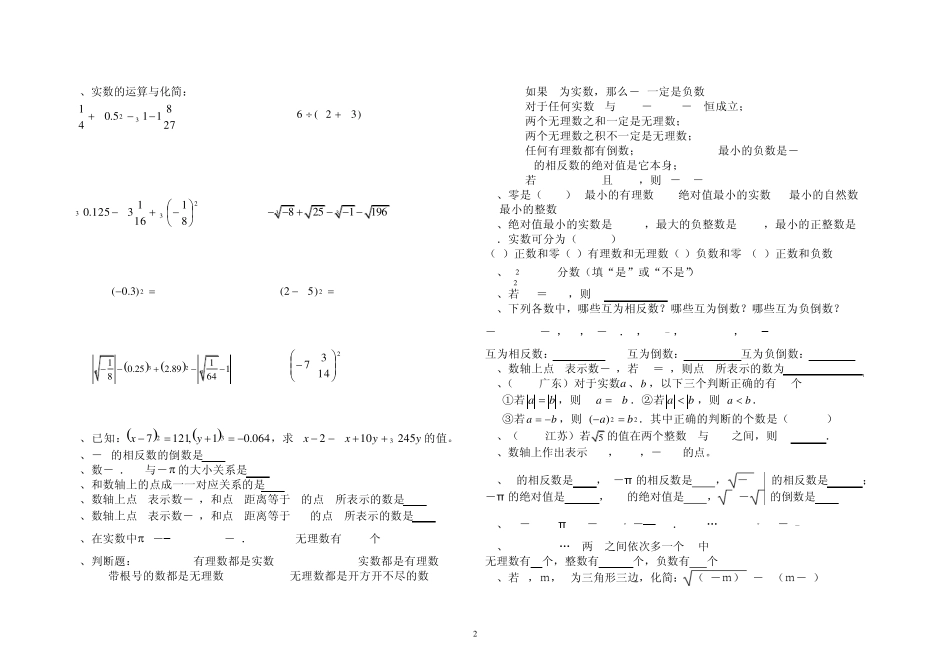 、实数的运算与化简；
1/4 + 0.5² − ³ 1−1 8/27
6÷( 2+ 3)
³ 0.125− 3 1/16 + ³ (−1/8)²
−³√−8+√25−³√−1−√196
(−0.3)² =
(2− 5)² =
|³√−1/8|−(0.25)³+(2.89)²−|³√1/64−1|
(−7 3/14)²
、已知：(x−7)²=121,(y+1)³=−0.064，求 x−2− x+10y+³ 245y 的值。
、－ 的相反数的倒数是
、数－ ． 与－π的大小关系是
、和数轴上的点成一一对应关系的是
、数轴上点 表示数－ ，和点 距离等于 的点 所表示的数是
、数轴上点 表示数－ ，和点 距离等于 的点 所表示的数是
、在实数中π － － ． 无理数有 个
、判断题： 有理数都是实数 实数都是有理数
带根号的数都是无理数 无理数都是开方开不尽的数
如果 为实数，那么－ 一定是负数
对于任何实数 与 － － 恒成立；
两个无理数之和一定是无理数；
两个无理数之积不一定是无理数；
任何有理数都有倒数； 最小的负数是－
的相反数的绝对值是它本身；
若 且 ，则 － －
、零是（ ） 最小的有理数 绝对值最小的实数 最小的自然数
最小的整数
、绝对值最小的实数是 ，最大的负整数是 ，最小的正整数是
．实数可分为（ ）
（ ）正数和零（ ）有理数和无理数（ ）负数和零 （ ）正数和负数
、 2/2 分数（填“是”或“不是”）
、若 ＝ ，则
、下列各数中，哪些互为相反数？哪些互为倒数？哪些互为负倒数？
－ － ， ， － ． ， － ， ， －
互为相反数： 互为倒数： 互为负倒数：
、数轴上点 表示数－ ，若 ＝ ，则点 所表示的数为
、（ 广东）对于实数a、b，以下三个判断正确的有 个
①若|a|=|b|，则 a= b．②若|a|<|b|，则 a<b．
③若a=−b，则 (−a)²=b²．其中正确的判断的个数是（ ）
、（ 江苏）若√5的值在两个整数 与 之间，则 ．
、数轴上作出表示 ， ，－ 的点。
、 的相反数是 ， －π的相反数是 ，√－ 的相反数是 ；
－π的绝对值是 ， 的绝对值是 ，√ －√ 的倒数是
、 － π － · － ． … · － －
、 … 两 之间依次多一个 中
无理数有 个，整数有 个，负数有 个
、若 ，m， 为三角形三边，化简：√（ －m） － （m－ ）
2